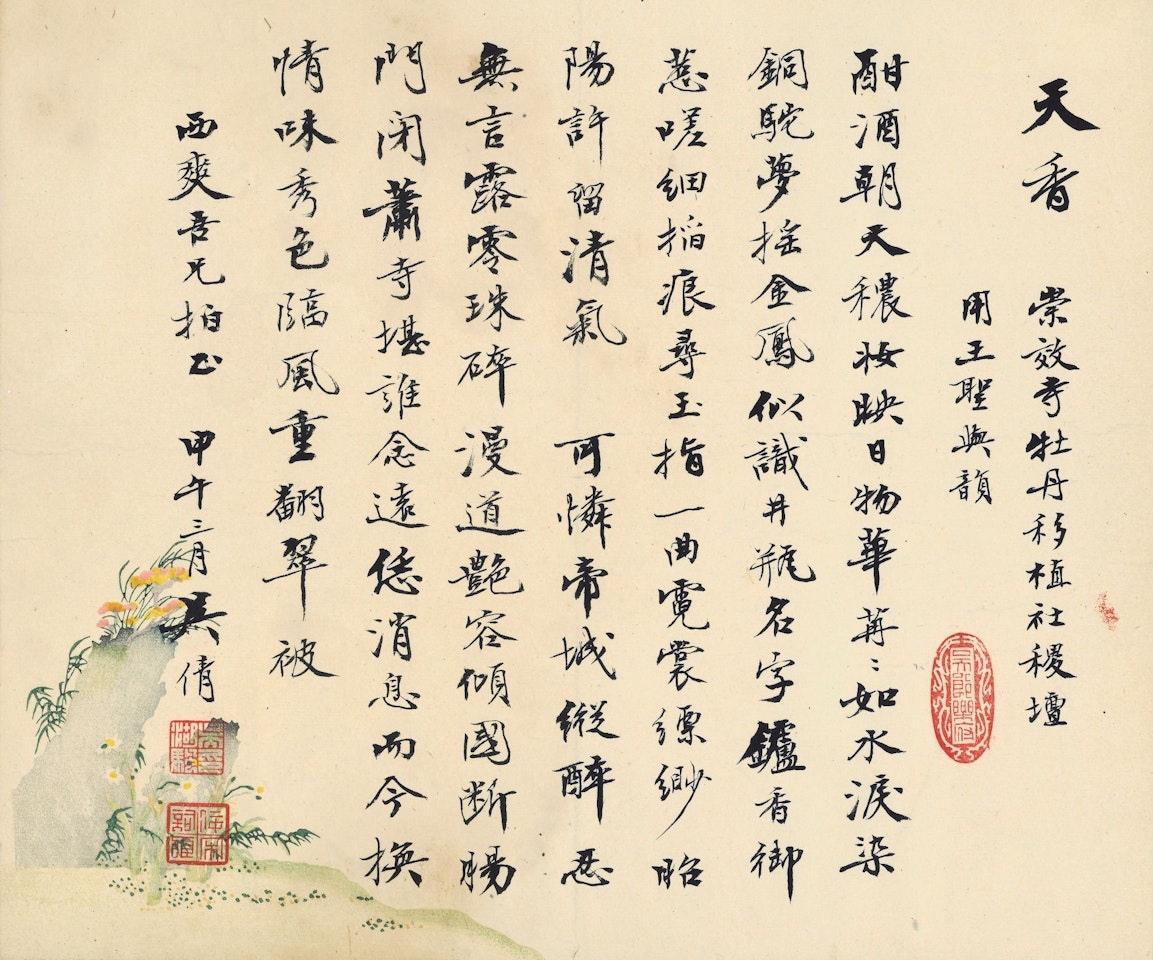 天香 崇效寺牡丹移植社稷壇
用王聖與韻
酣酒朝天穠妝映日物華苒〻如水淚染
銅駝夢搖金鳳似識井瓶名字鑪香御
惹嗟細掐痕尋玉指一曲霓裳縹緲昭
陽許留清氣 可憐帝城縱醉忍
無言露零珠碎漫道艷容傾國斷腸
門閉蕭寺堪誰念遠恁消息而今換
情味秀色臨風重翻翠被
西爽吾兄拍正 甲午三月 吳倩